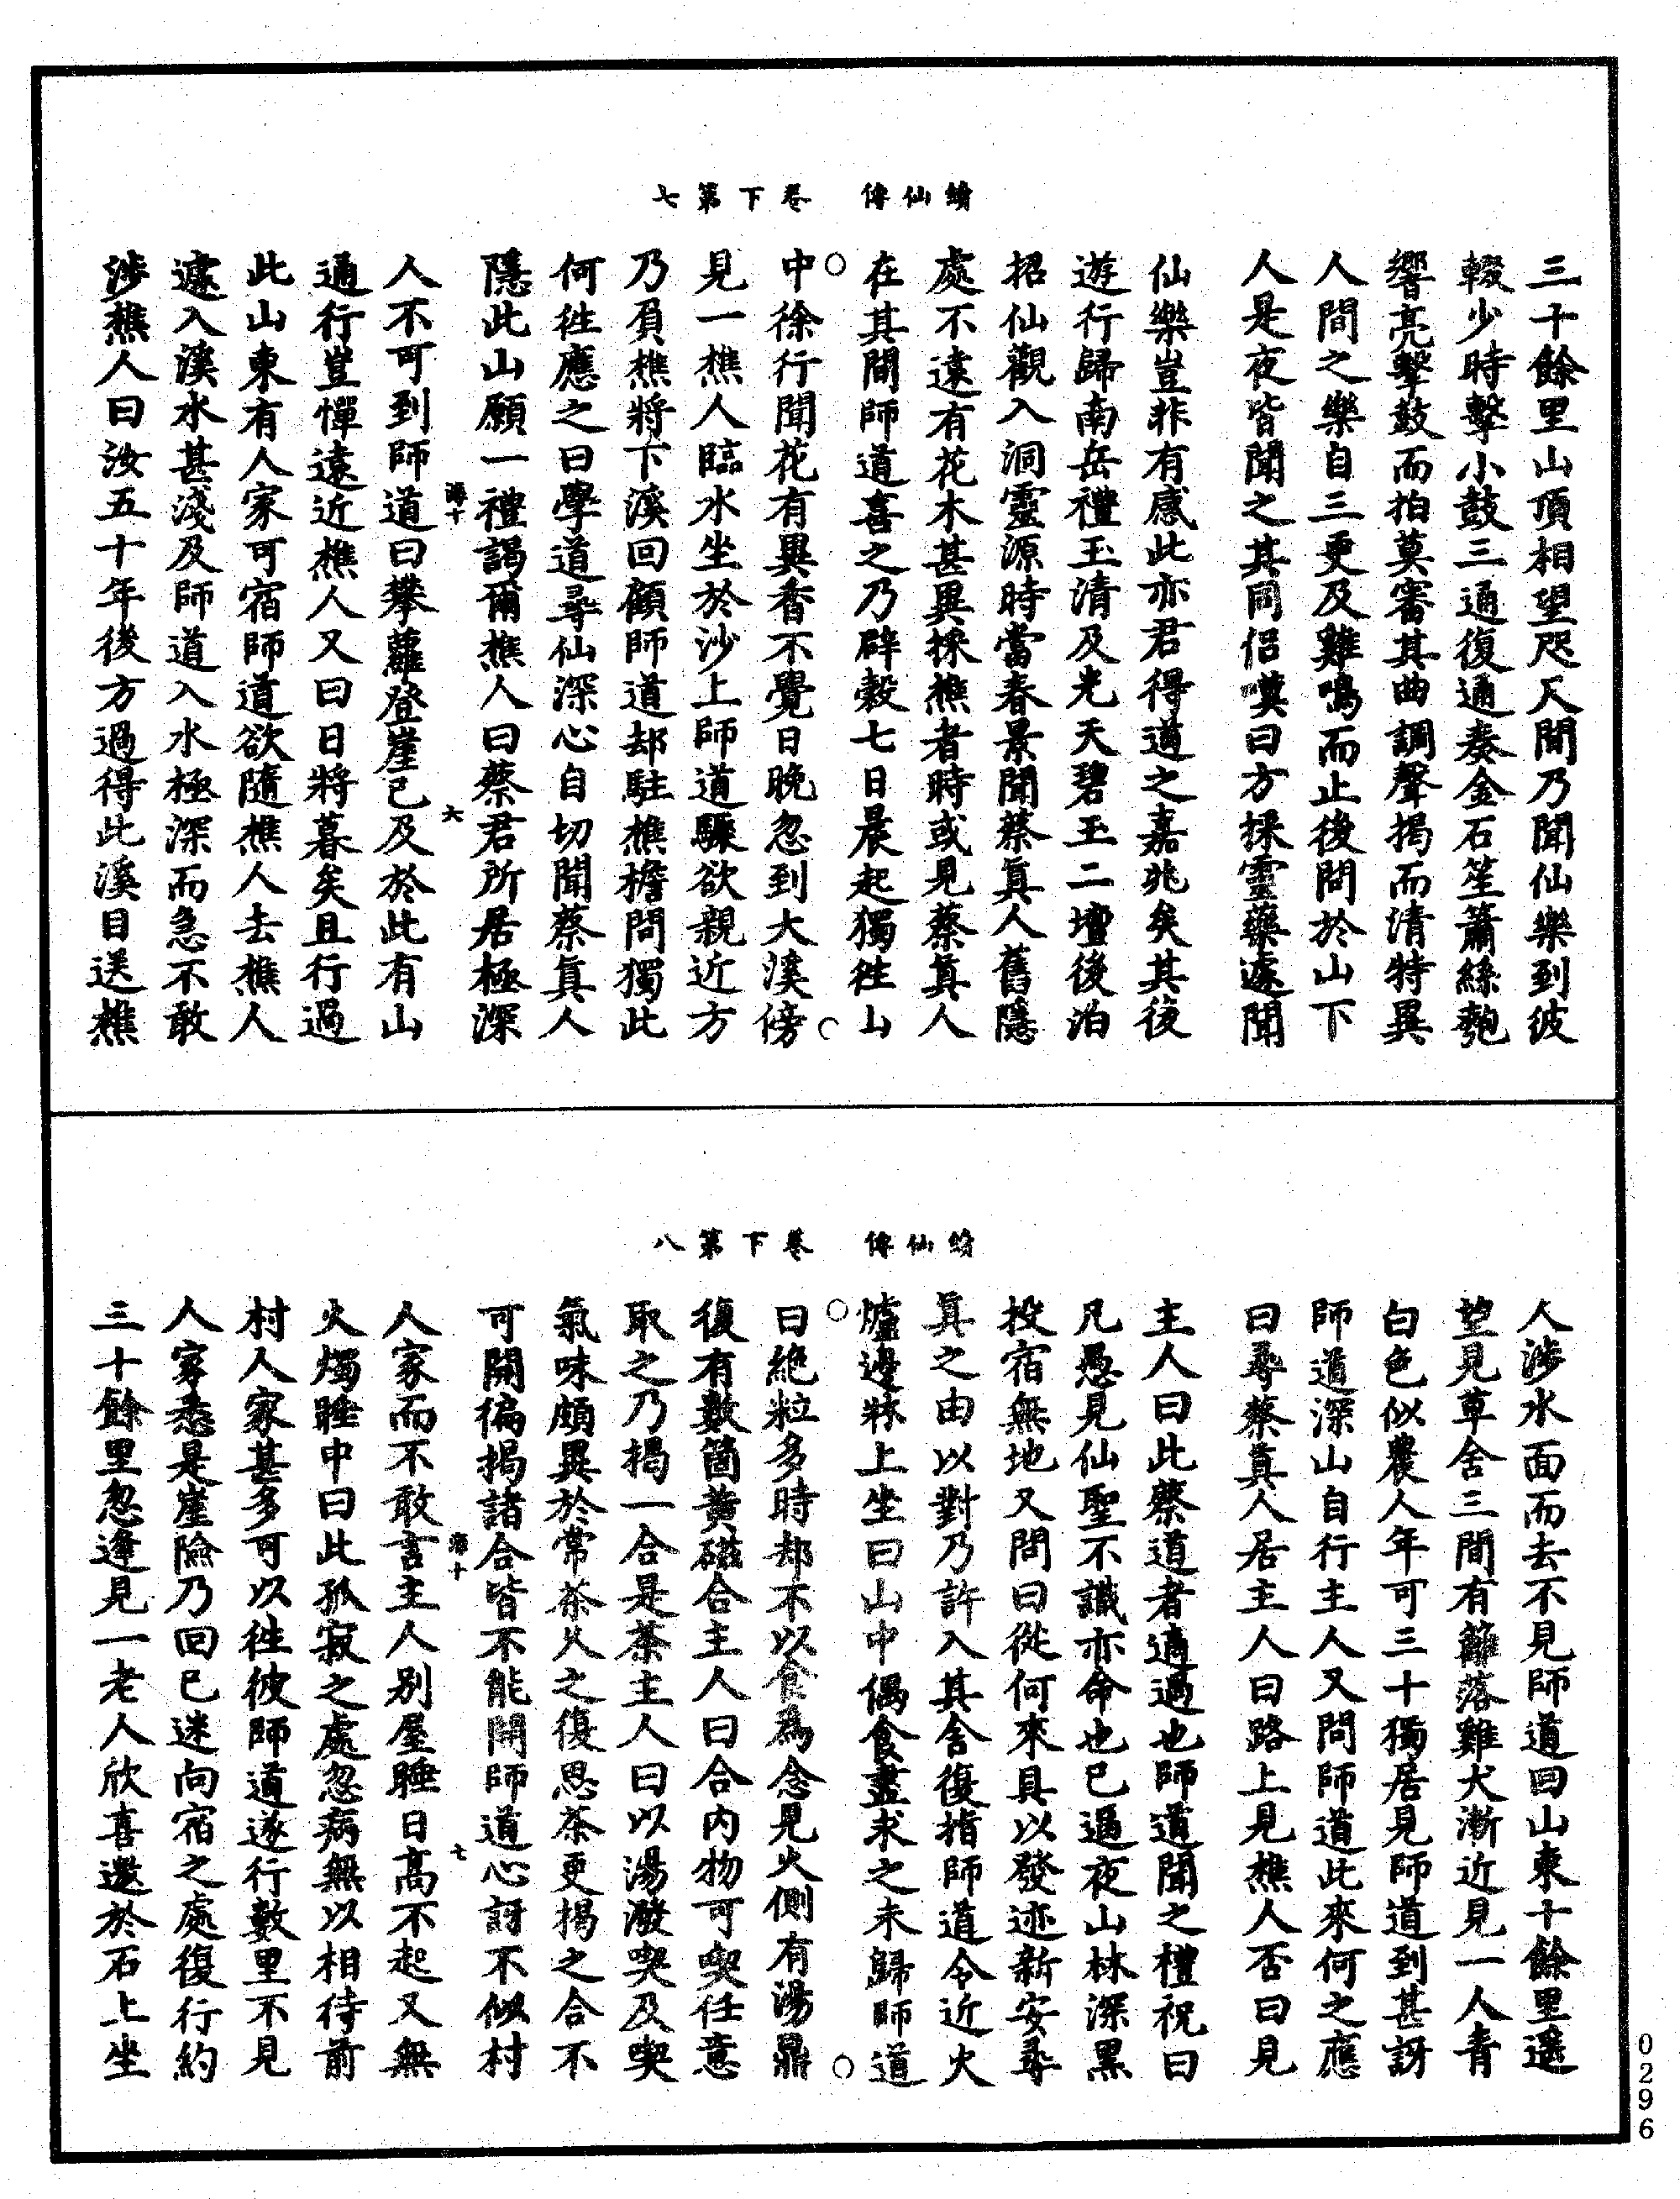 續仙傳　卷下第七
三十餘里山頂相望咫尺人間乃聞仙樂到彼
輟少時擊小鼓三通復通奏金石笙簫絲匏
響亮擊鼓而拍莫審其曲調聲揭而清特異
人間之樂自三更及雞鳴而止後問於山下
人是夜皆聞之其同侶嘆曰方採靈藥遽聞
仙樂豈非有感此亦君得道之嘉兆矣其後
遊行歸南岳禮玉清及光天碧玉二壇後泊
招仙觀入洞靈源時當春景聞蔡真人舊隱
處不遠有花木甚異採樵者時或見蔡真人
在其間師道喜之乃辟穀七日晨起獨往山
中徐行聞花有異香不覺日晚忽到大溪傍
見一樵人臨水坐於沙上師道驟欲親近方
乃負樵將下溪回顧師道却駐樵檐問獨此
何往應之曰學道尋仙深心自切聞蔡真人
隱此山願一禮謁爾樵人曰蔡君所居極深
海十　六
人不可到師道曰攀蘿登崖已及於此有山
通行豈憚遠近樵人又曰日將暮矣且行過
此山東有人家可宿師道欲隨樵人去樵人
遽入溪水甚淺及師道入水極深而急不敢
涉樵人曰汝五十年後方過得此溪目送樵
續仙傳　卷下第八
人涉水面而去不見師道回山東十餘里遥
望見草舍三間有籬落雞犬漸近見一人青
白色似農人年可三十獨居見師道到甚訝
師道深山自行主人又問師道此來何之應
曰尋蔡真人居主人曰路上見樵人否曰見
主人曰此蔡道者適過也師道聞之禮祝曰
凡愚見仙聖不識亦命也已逼夜山林深黑
投宿無地又問曰從何來具以發迹新安尋
真之由以對乃許入其舍復指師道令近火
爐邊牀上坐曰山中偶食盡求之未歸師道
曰絕粒多時却不以食為念見火側有湯鼎
復有數箇黄磁合主人曰合内物可喫任意
取之乃揭一合是茶主人曰以湯潑喫及喫
氣味頗異於常茶久之復思茶更揭之合不
可開徧揭諸合皆不能開師道心訝不似村
海十　七
人家而不敢言主人别屋睡日高不起又無
火燭睡中曰此孤寂之處忽病無以相待前
村人家甚多可以往彼師道遂行數里不見
人家悉是崖險乃回已迷向宿之處復行約
三十餘里忽逢見一老人欣喜邀於石上坐
0296